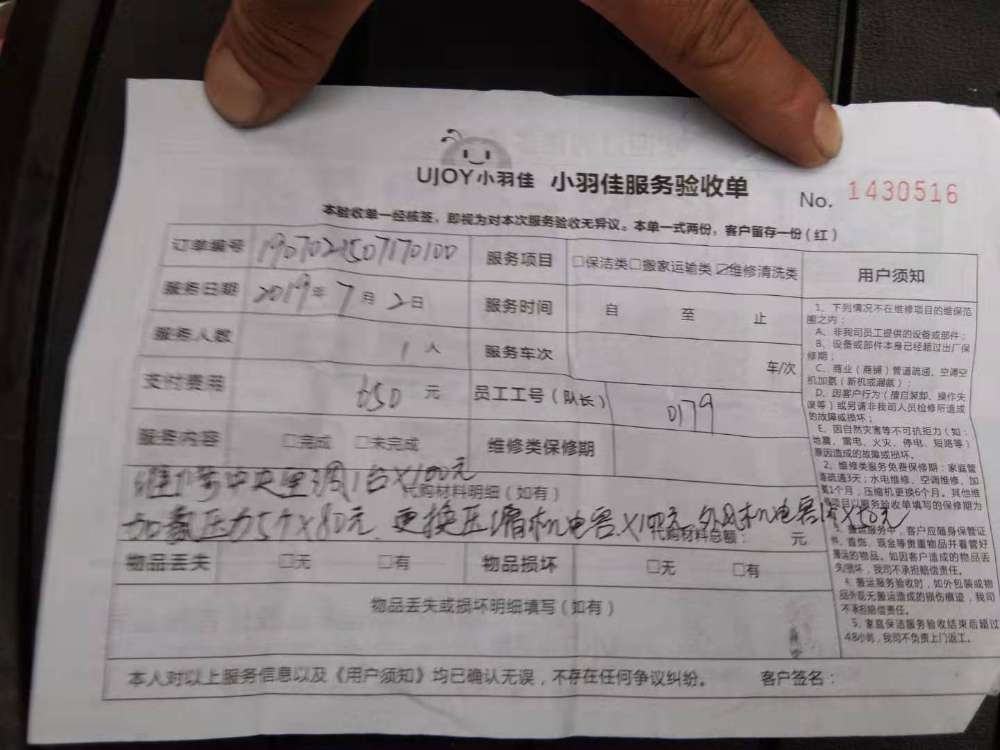 UJOY小羽佳 小羽佳服务验收单
No. 1430516
本验收单一经核签，即视为对本次服务验收无异议。本单一式两份，客户留存一份（红）
订单编号 1907021507170100 服务项目 □保洁类□搬家运输类☑维修清洗类
服务日期 2019年7月2日 服务时间 自 至 止
服务人数 1人 服务车次 车/次
支付费用 650元 员工工号（队长） 0179
服务内容 □完成 □未完成 维修类保修期
中央空调1台×100元
代购材料明细（如有）
加氟压力5个×80元 更换压缩机电容×100元 外风机电容
代购材料总额： 元
物品丢失 □无 □有 物品损坏 □无 □有
物品丢失或损坏明细填写（如有）
本人对以上服务信息以及《用户须知》均已确认无误，不存在任何争议纠纷。 客户签名：
用户须知
1、下列情况不在维修项目的维保范
围之内：
A、非我司员工提供的设备或部件；
B、设备或部件本身已经超过出厂保
修期；
C、商业（商铺）管道疏通，空调空
机加氨（新机或漏氨）；
D、因客户行为（擅自装卸、操作失
误等）或另请非我司人员检修所造成
的故障或损坏；
E、因自然灾害等不可抗拒力（如：
地震、雷电、火灾、停电、短路等）
原因造成的故障或损坏。
2、维修类服务免费保修期：家庭管
道疏通3天；水电维修、空调维修、加
1个月，压缩机更换6个月。其他维
项目以服务验收单填写的保修期为
服务中，客户应随身保管证
件、首饰、现金等贵重物品并看管好
搬运的物品。如因客户造成的物品丢
失/损坏，我司不承担赔偿责任。
4、搬运服务验收时，如外包装或物
品外观无搬运造成的损伤痕迹，我司
不承担赔偿责任。
5、家庭保洁服务验收结束后超过
48小时，我司不负责上门返工。